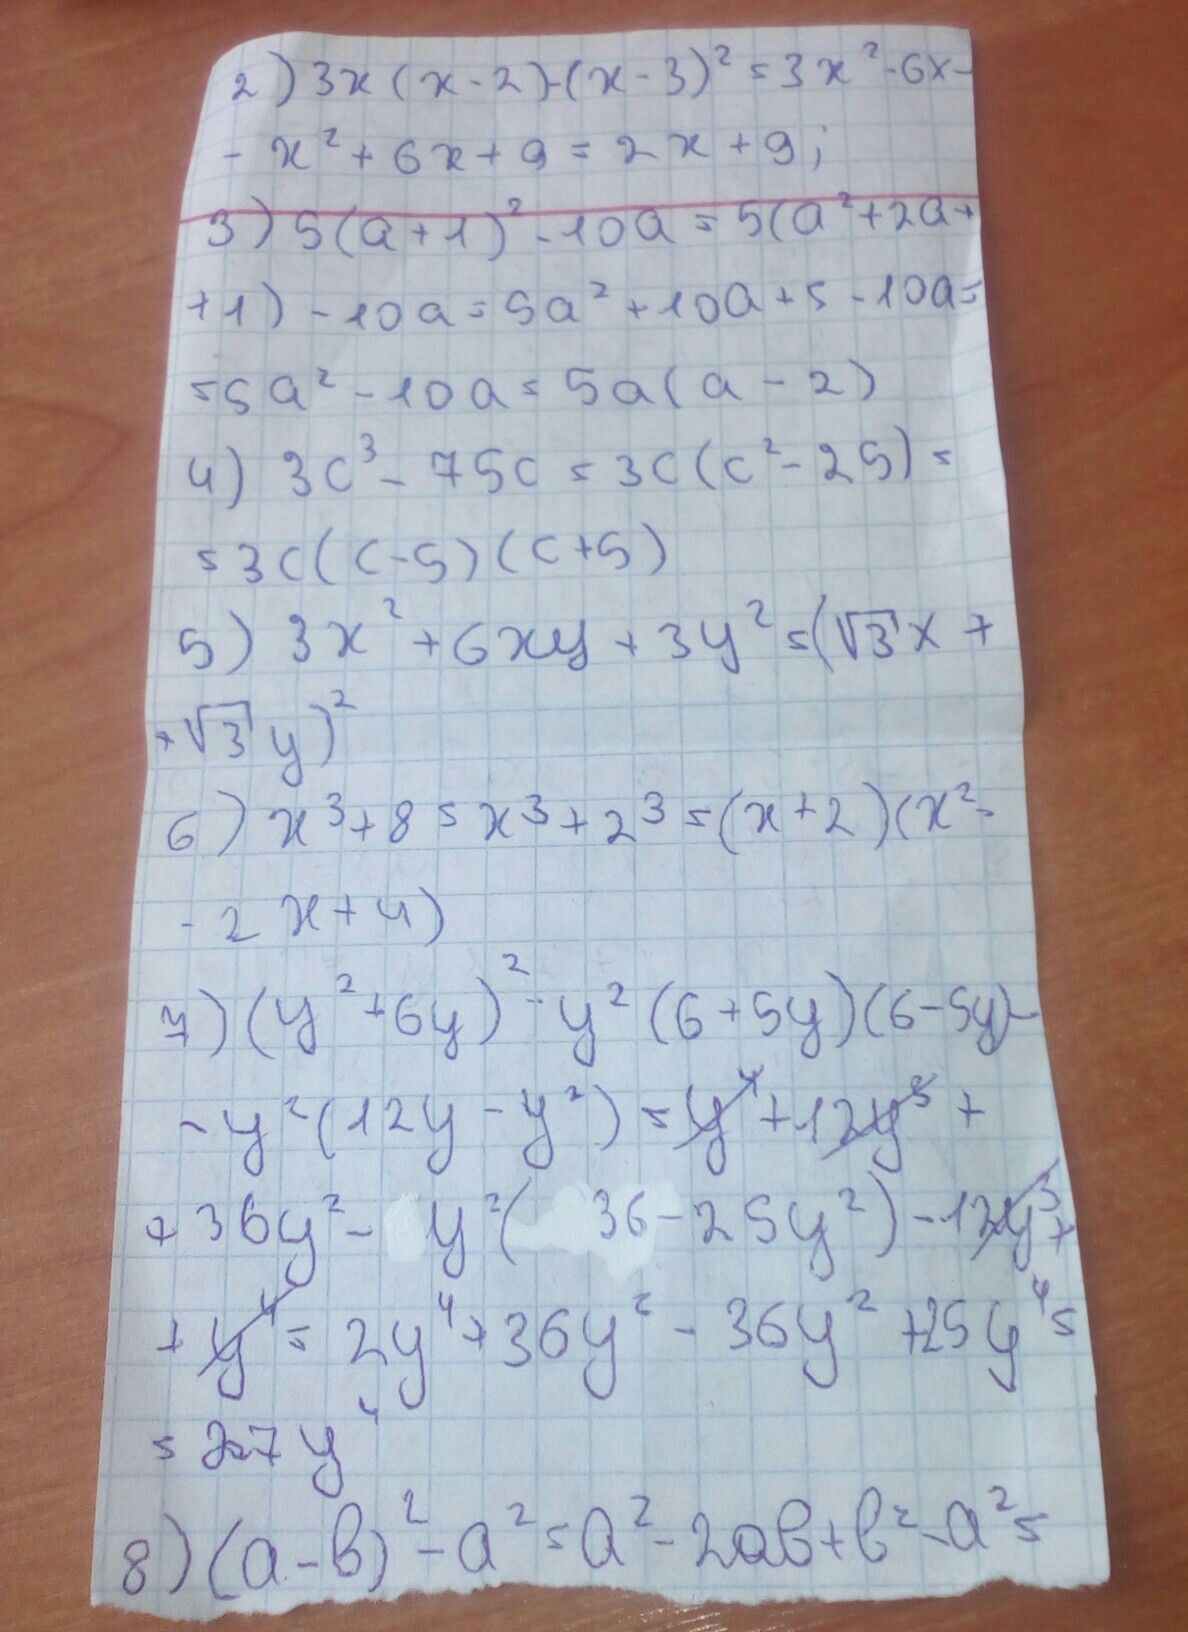 2) 3x(x-2)-(x-3)² = 3x²-6x-
- x² + 6x + 9 = 2x + 9;
3) 5(a+1)² - 10a = 5(a²+2a+
+1) - 10a = 5a² + 10a + 5 - 10a =
= 5a² - 10a = 5a(a - 2)
4) 3c³ - 75c = 3c(c² - 25) =
= 3c(c-5)(c+5)
5) 3x² + 6xy + 3y² = (√3x +
+ √3y)²
6) x³+8 = x³+2³ = (x+2)(x²-
- 2x+4)
7) (y²+6y)² - y²(6+5y)(6-5y)-
- y²(12y - y²) = y⁴ + 12y³ +
+ 36y² - y²(36 - 25y²) - 12y³ +
+ y⁴ = 2y⁴ + 36y² - 36y² + 25y⁴ =
= 27y⁴
8) (a-b)² - a² = a² - 2ab + b² - a² =